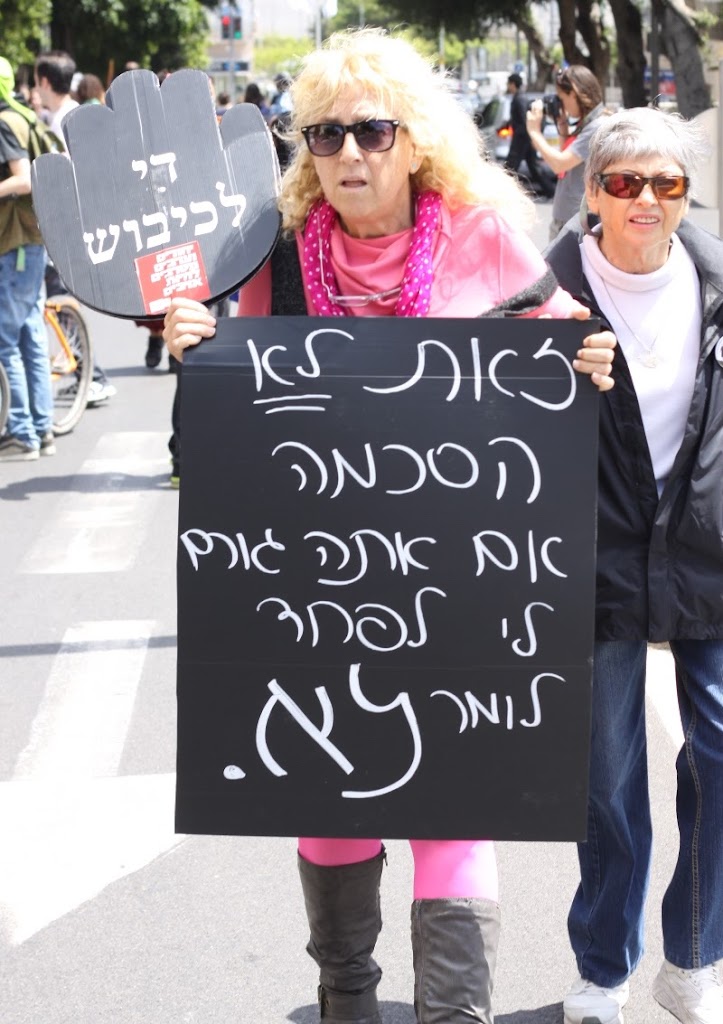 די
לכיבוש
זאת לא
הסכמה
אם אתה גורם
לי לפחד
לומר
לא.